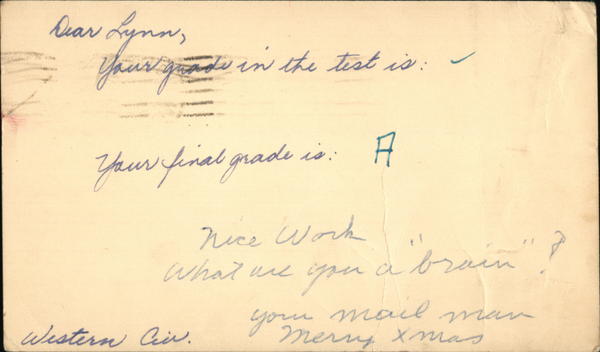 Dear Lynn,
Your grade in the test is: ✓
Your final grade is: A
Nice Work
What are you a "brain"?
your mail man
Merry Xmas
Western Civ.